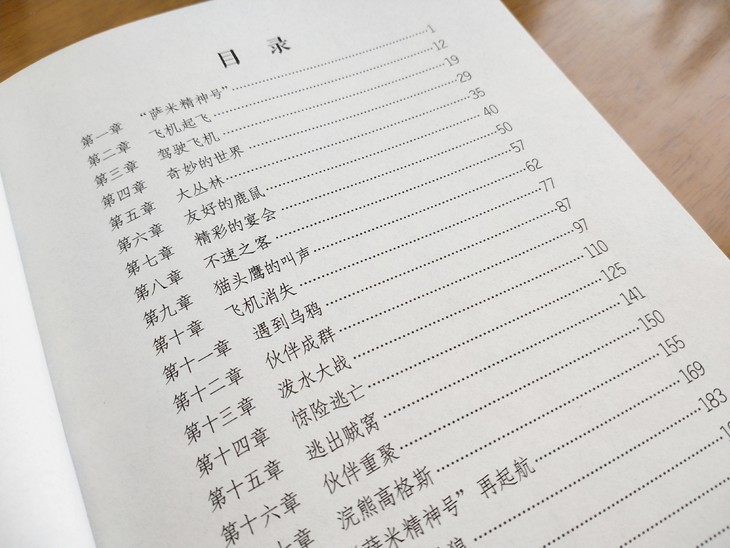 目 录
第一章 “萨米精神号” 1
第二章 飞机起飞 12
第三章 驾驶飞机 19
第四章 奇妙的世界 29
第五章 大丛林 35
第六章 友好的鹿鼠 40
第七章 精彩的宴会 50
第八章 不速之客 57
第九章 猫头鹰的叫声 62
第十章 飞机消失 77
第十一章 遇到乌鸦 87
第十二章 伙伴成群 97
第十三章 泼水大战 110
第十四章 惊险逃亡 125
第十五章 逃出贼窝 141
第十六章 伙伴重聚 150
章 浣熊高格斯 155
萨米精神号” 再起航 169
狼 183